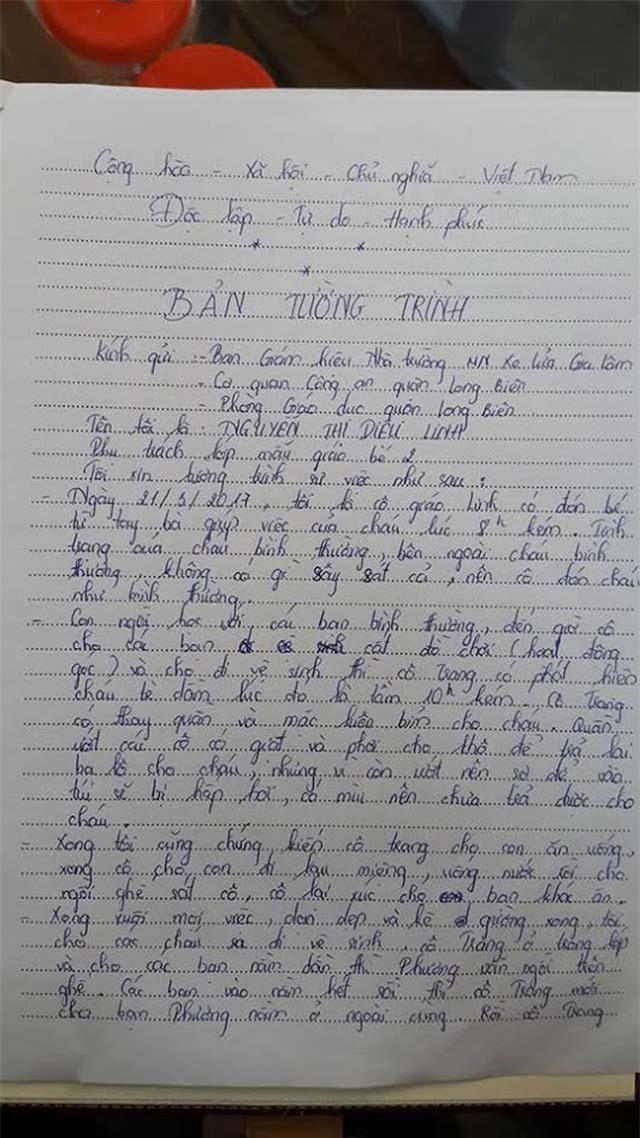 Cộng hòa - Xã hội - Chủ nghĩa - Việt Nam
Độc lập - Tự do - Hạnh phúc
BẢN TƯỜNG TRÌNH
Kính gửi : - Ban Giám hiệu Nhà trường MN Xe lửa Gia Lâm
- Cơ quan Công an quận Long Biên
- Phòng Giáo dục quận Long Biên
Tên tôi là : NGUYỄN THỊ DIỆU LINH
Phụ trách lớp mẫu giáo bé 2
Tôi xin tường trình sự việc như sau :
- Ngày 21/3/2017, tôi là cô giáo Linh có đón bé
từ tay bà giúp việc của cháu lúc 8h kém. Tình
trạng của cháu bình thường, bên ngoài cháu bình
thường, không có gì sây sát cả, nên cô đón cháu
như bình thường.
- Con ngồi học với các bạn bình thường, đến giờ cô
cho các bạn cất đồ chơi (hoạt động
góc) và cho đi vệ sinh thì cô Trang có phát hiện
cháu tè dầm lúc đó là tầm 10h kém. Cô Trang
có thay quần và mặc luôn bỉm cho cháu. Quần
ướt các cô có giặt và phơi cho khô để trả lại
ba lô cho cháu, nhưng vì còn ướt nên sợ để vào
túi sẽ bị hấp hơi, có mùi nên chưa trả được cho
cháu.
- Xong tôi cũng chứng kiến cô trang cho con ăn uống,
xong cô cho con đi lau miệng, uống nước rồi cho
ngồi ghế sát cô, cô lại xúc cho bạn khác ăn.
- Xong xuôi mọi việc, dọn dẹp và kê giường xong, tôi
cho các cháu ra đi vệ sinh, cô Trang ở trong lớp
và cho các bạn nằm dần thì Phương vẫn ngồi trên
ghế. Các bạn vào nằm hết rồi thì cô Trang mới
cho bạn Phương nằm ở ngoài cùng. Rồi cô Trang